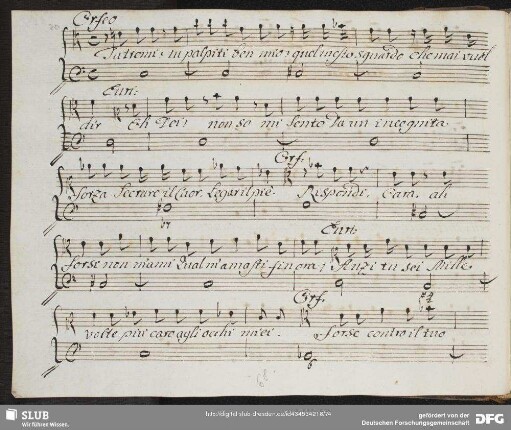 Orfeo
Tu tremi, tu palpiti ben mio, quel mesto sguardo che mai vuol
Euri:
dir Eh Dei! non so mi sento da un incognita
Orf.
forza secture il Cuor. Legar il piè. Rispondi, Cara, ah
Euri:
forse non m'ami Qual m'amasti fin ora; Anzi tu sei Mille
Orf.
volte più caro agli occhi miei. forse contro il tuo
SLUB
Wir führen Wissen.
http://digital.slub-dresden.de/id434554218/74
gefördert von der
Deutschen Forschungsgemeinschaft
DFG